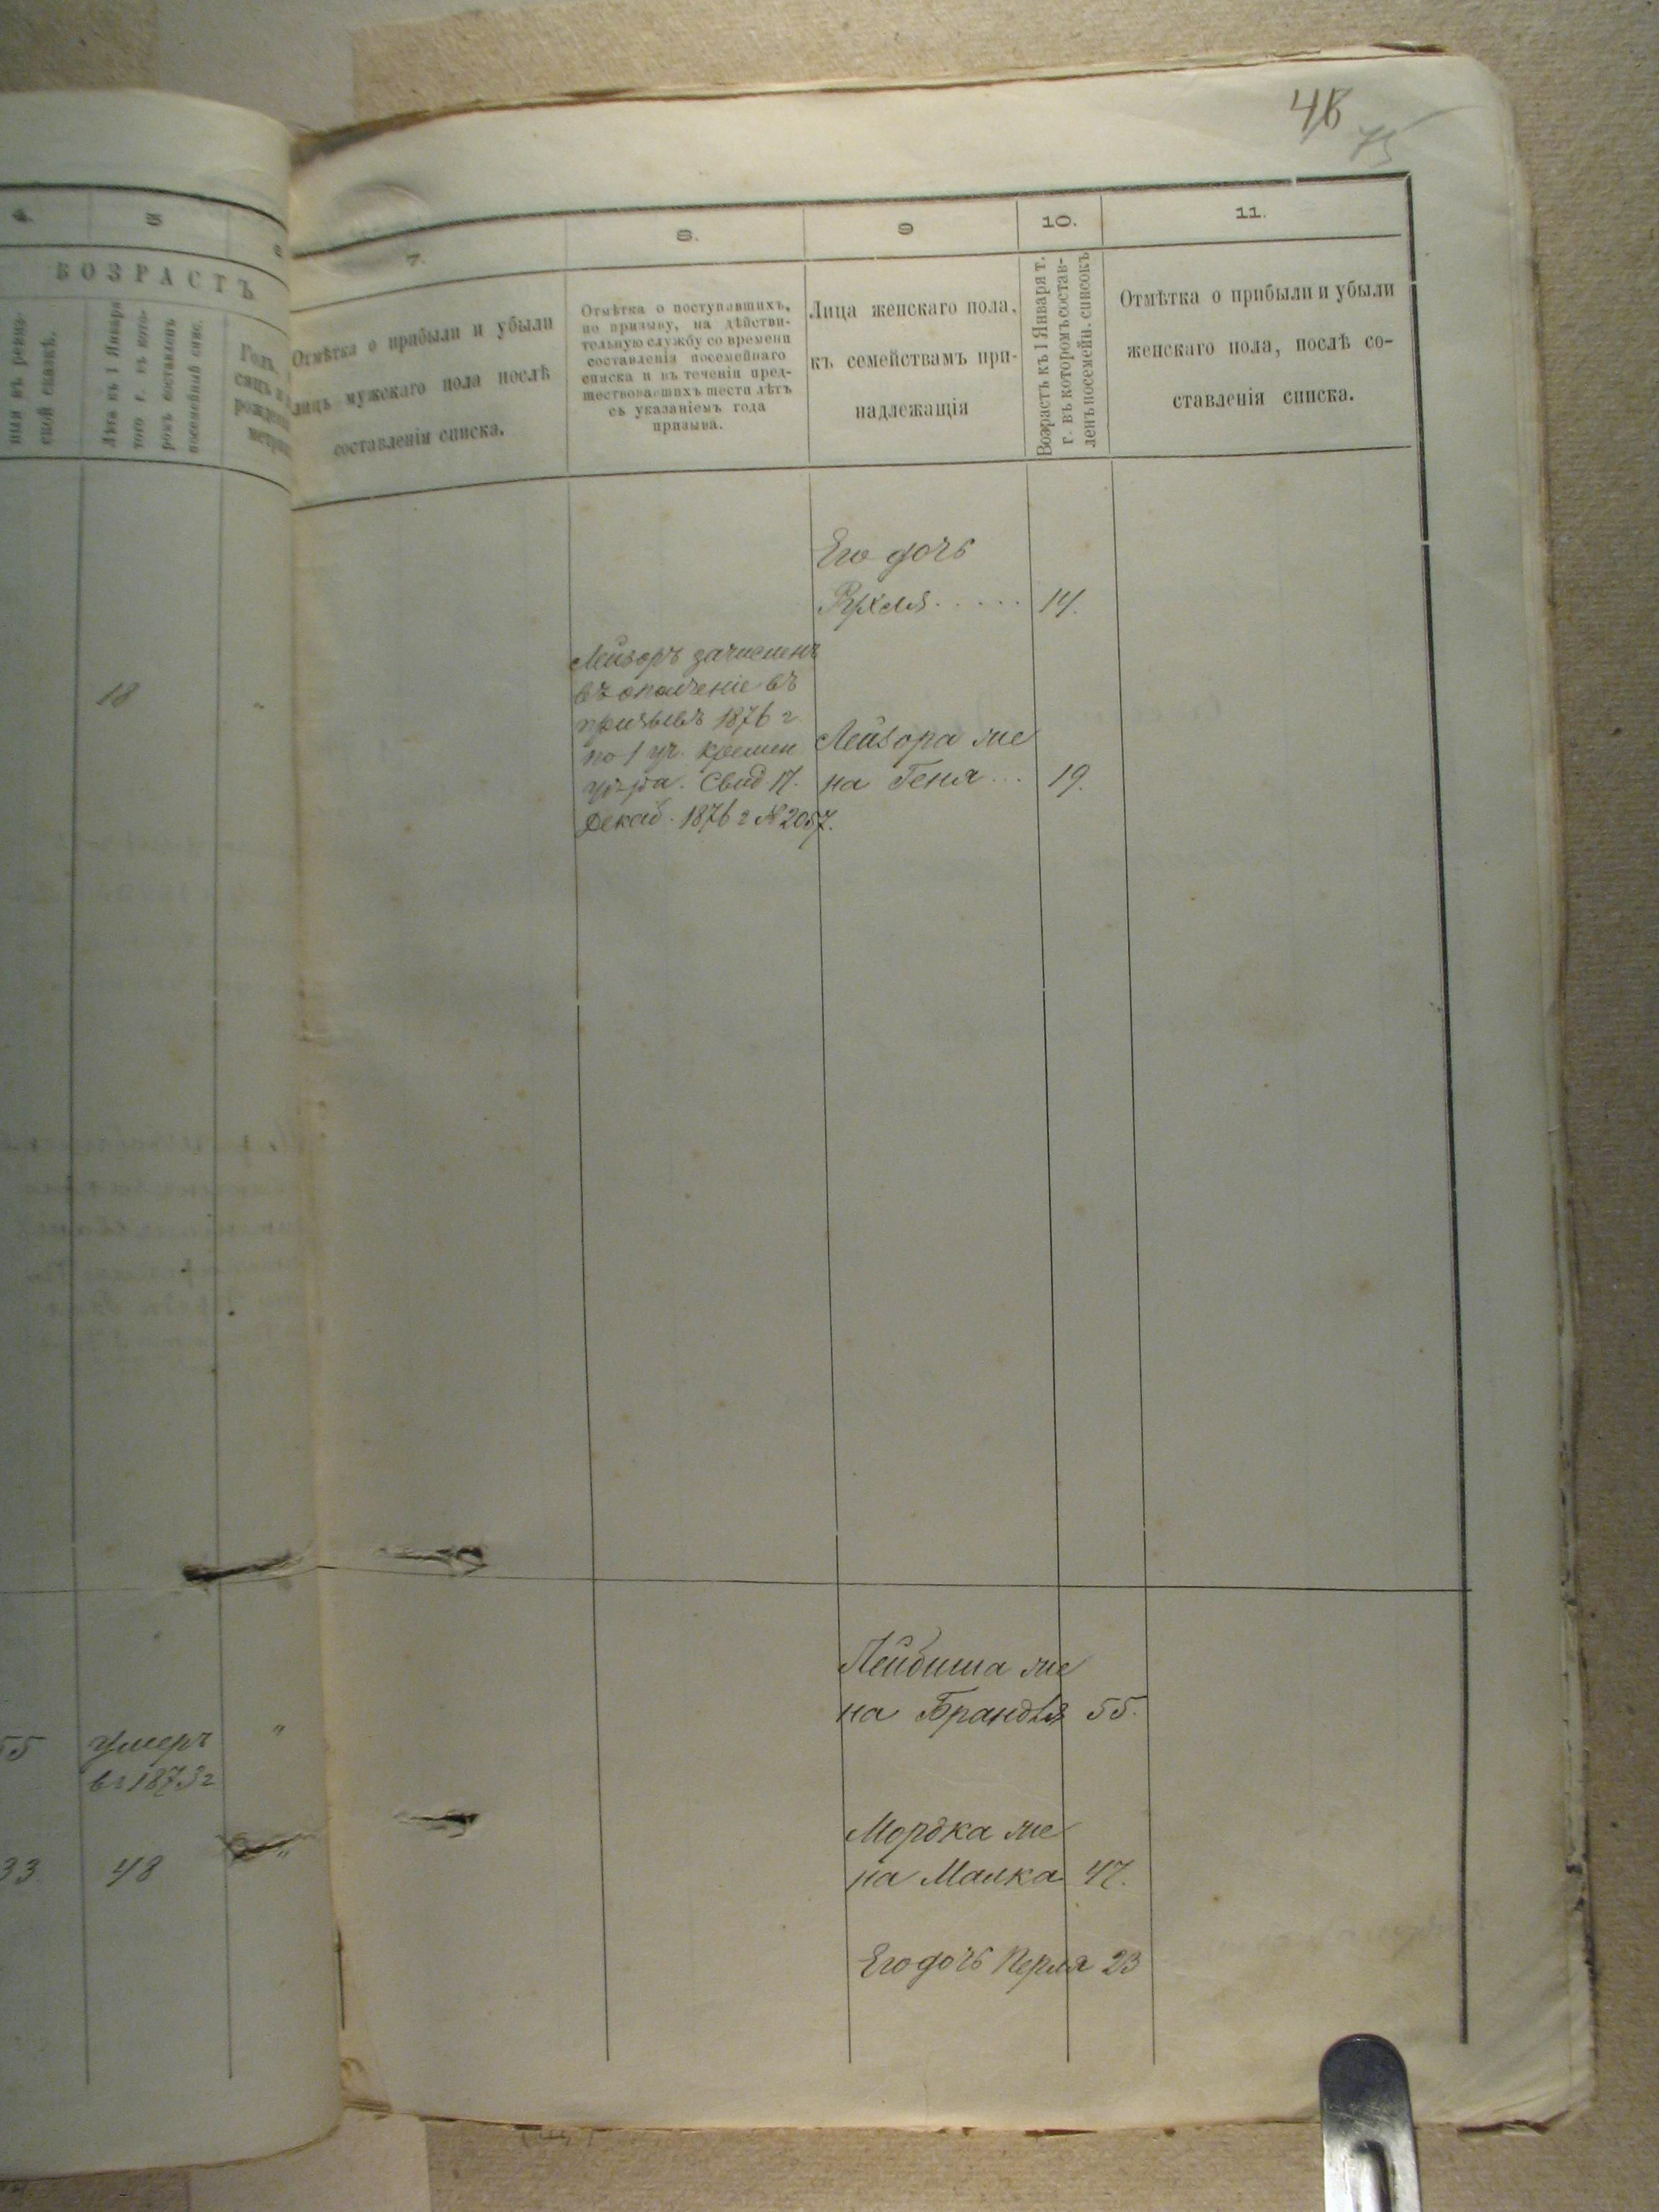 48
75
4.
5
ВОЗРАСТЪ
ныя въ ревиз-
ской сказкѣ.
Лѣта къ 1 Января
того г. въ кото-
ромъ составленъ
посемейный спис.
18
55 умеръ "
въ 1873 г
33 48 "
7.
8.
9
10.
11.
Отмѣтка о прибыли и убыли
лицъ мужскаго пола послѣ
составленія списка.
Отмѣтка о поступавшихъ,
по призыву, на дѣйстви-
тельную службу со времени
составленія посемейнаго
списка и въ теченіи пред-
шествовавшихъ шести лѣтъ
съ указаніемъ года
призыва.
Лица женскаго пола,
къ семействамъ при-
надлежащія
Возрастъ къ 1 Января т.
г. въ которомъ состав-
ленъ посемейн. списокъ
Отмѣтка о прибыли и убыли
женскаго пола, послѣ со-
ставленія списка.
Его дочь
Рухля..... 14.
Лейзоръ зачисленъ
въ ополченіе въ
призывъ 1876 г
по 1 уч. Кремен
Свид. 17.
Декаб. 1876 г № 2057.
Лейзора же
на Геня... 19.
Лейбиша же
на Брандля 55.
Мордка же
на Малка 47.
Его дочь Перля 23